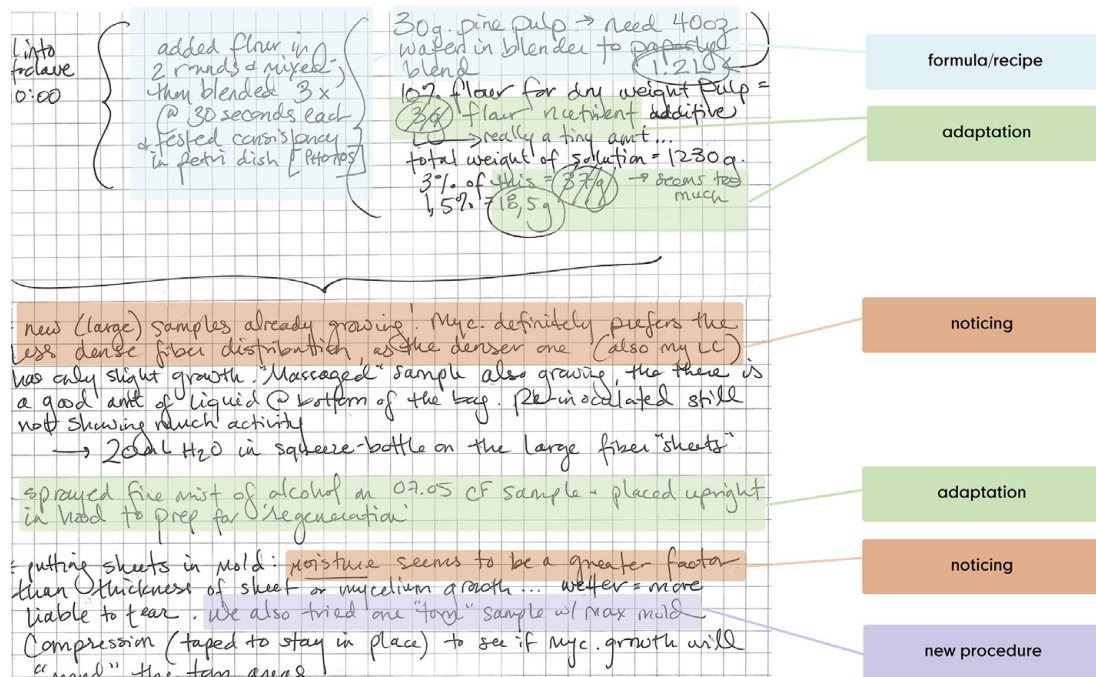 into
toclave
0:00
added flour in
2 rounds & mixed,
then blended 3x
@ 30 seconds each
& tested consistency
in petri dish [PHOTOS]
30g. pine pulp → need 40oz
water in blender to properly
blend
1.2L
10% flour for dry weight pulp =
3g flour nutrient additive
→ really a tiny amt...
total weight of sollution = 1230g.
3% of this = 37g → seems too
much
1,5% = 18,5g
formula/recipe
adaptation
new (large) samples already growing! Myc. definitely prefers the
less dense fiber distribution, as the denser one (also my LC)
has only slight growth. "Massaged" sample also growing, tho there is
a good amt of liquid @ bottom of the bag. Re-inoculated still
not showing much activity
→ 200mL H2O in squeeze-bottle on the large fiber "sheets"
noticing
sprayed fine mist of alcohol on 07.05 CF sample + placed upright
in hood to prep for 'regeneration'
adaptation
putting sheets in mold: moisture seems to be a greater factor
than thickness of sheet or mycelium growth... wetter = more
liable to tear. We also tried one "torn" sample w/ max mold
compression (taped to stay in place) to see if myc. growth will
"mend" the torn areas
noticing
new procedure